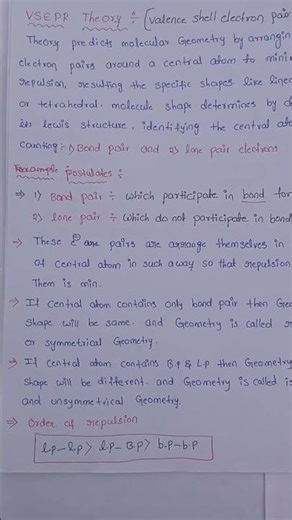 VSEPR Theory ÷ (Valence shell electron pair
Theory predicts molecular Geometry by arrangin
electron pairs around a central atom to mini
repulsion, resulting the specific shapes like linea
or tetrahedral. molecule shape determines by d
its lewis structure, identifying the central ato
counting:- 1) Bond pair and 2) lone pair electrons
Postulates ÷
⇒ 1) Bond pair ÷ which participate in bond for
2) lone pair ÷ which do not participate in bond
→ These e⁻ pairs are arrange themselves in
of central atom in such a way so that repulsion
Them is min.
→ If Central atom contains only bond pair then Geo
Shape will be same. and Geometry is called
or symmetrical Geometry.
→ If central atom contains B.P & L.P then Geometry
Shape will be different. and Geometry is called i
and unsymmetrical Geometry.
⇒ Order of repulsion
l.p-l.p > l.p-B.p > b.p-b.p